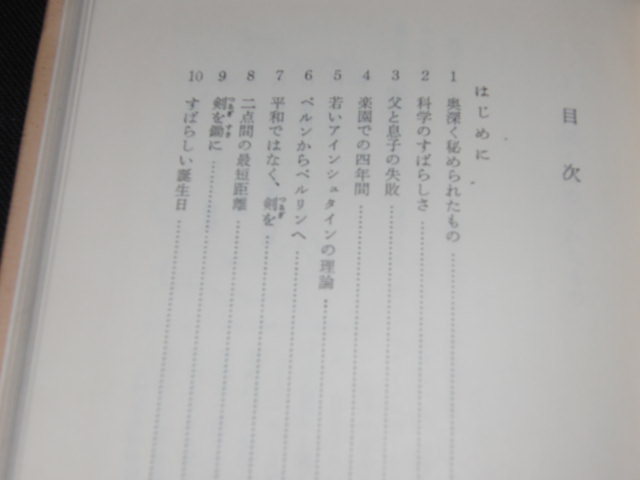 目次
はじめに
1 奥深く秘められたもの
2 科学のすばらしさ
3 父と息子の失敗
4 楽園での四年間
5 若いアインシュタインの理論
6 ベルンからベルリンへ
7 平和ではなく、剣を
8 二点間の最短距離
9 剣を鋤に
10 すばらしい誕生日